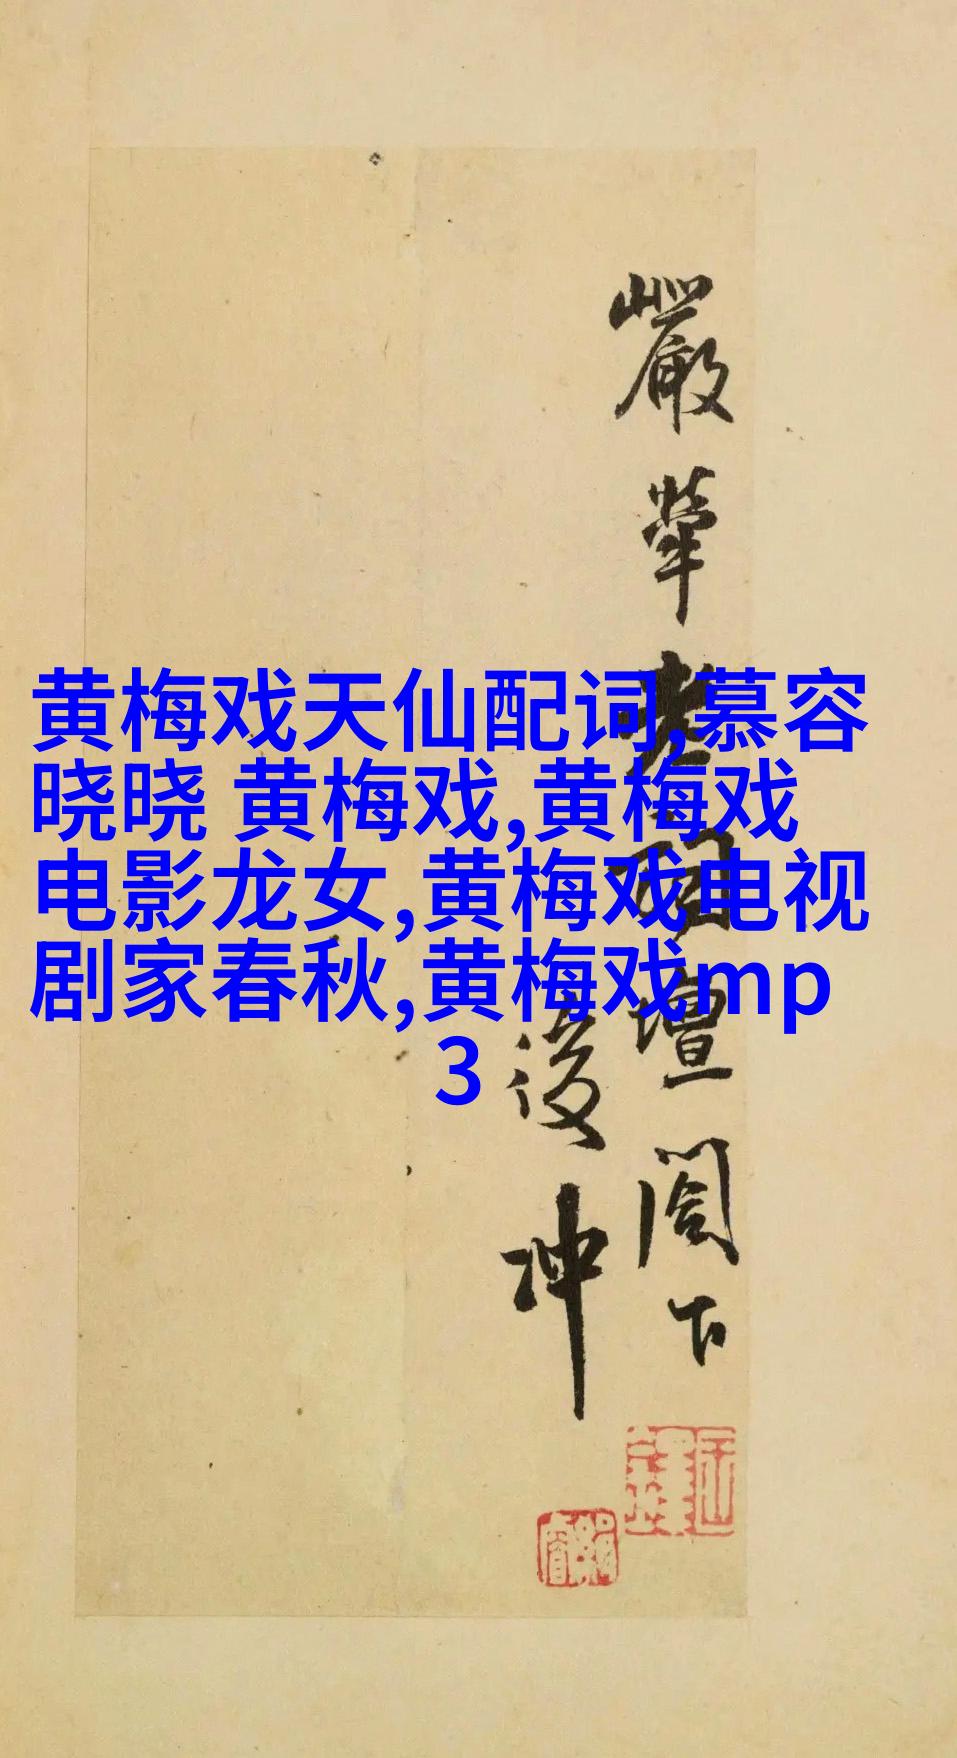 黄梅戏天仙配词,慕容
晓晓 黄梅戏,黄梅戏
电影龙女,黄梅戏电视
剧家春秋,黄梅戏mp
3
嚴犖
壇閣下
後冲